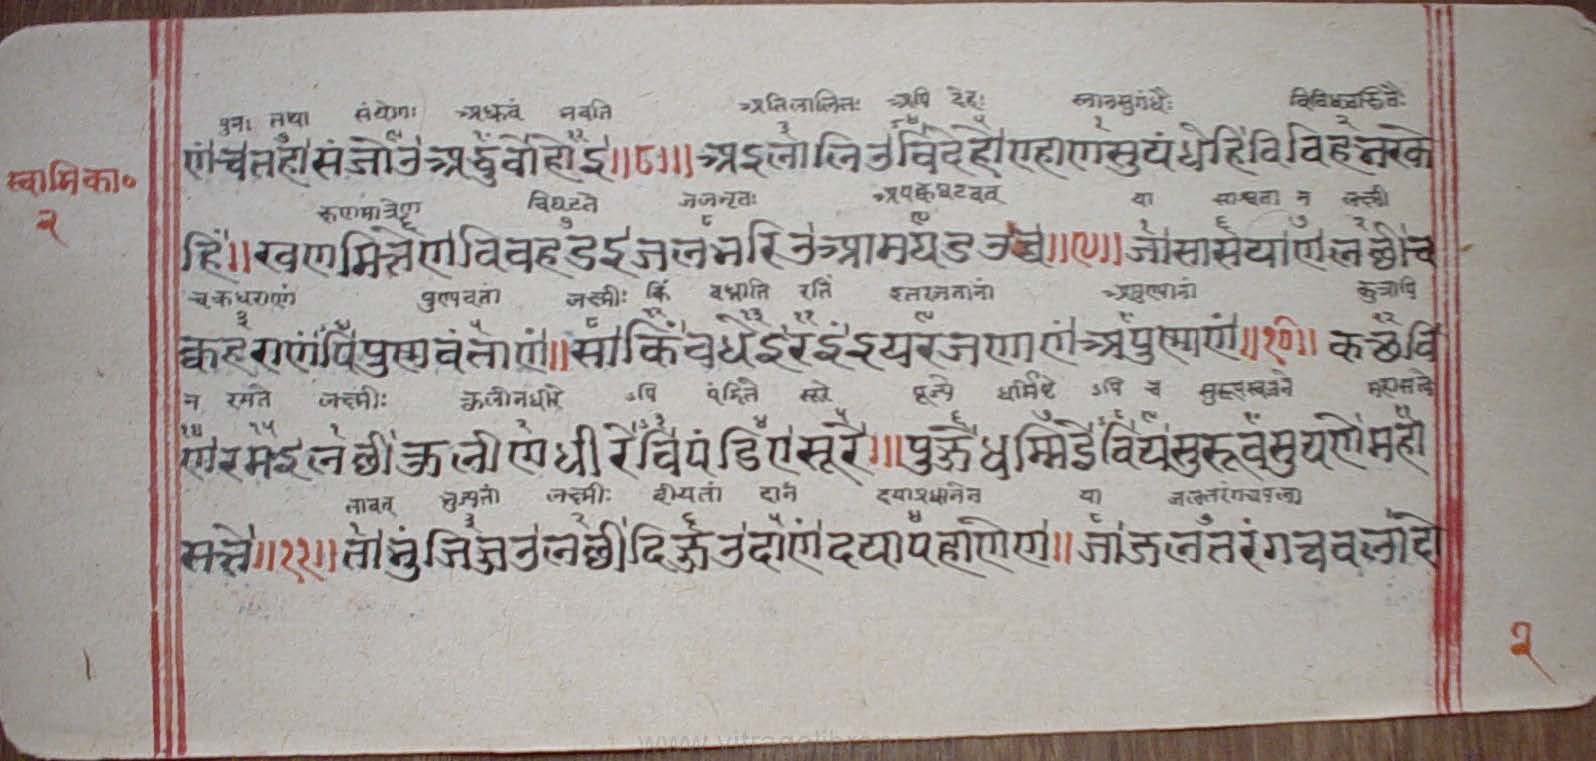 पुनः तथा संयोगः अध्रुवं भवति अतिलालितः अपि देहः स्नानसुगंधैः
णं च तहा संजोउ अद्धुवो होइ॥८॥ अइलालिउ वि देहो ण्हाणसुयंधेहिं विविहभरके
स्वामिका॰
२
क्षणमात्रेण विघटते जलभृतः अपक्वघटवत् या साश्वता न लक्ष्मी
हिं॥ खणमित्तेण वि विहडइ जलभरिउ आमयडउ व्व॥९॥ जा सासया ण लछी च
चक्रधराणां पुण्यवतां लक्ष्मीः किं बध्नाति रतिं इतरजनानां अपुण्यानां कुत्रापि
क्कहराणं पि पुण्णवंताणं॥ सा किं बधेइ रइं इयरजणाणं अपुण्णाणं॥१०॥ कछवि
न रमते लक्ष्मीः कुलीनधीरे ऽपि पंडिते सूरे पूज्ये धर्मिष्टे ऽपि च
ण रमइ लछी कुलीणधीरे वि पंडिए सूरे॥ पुज्जे धम्मिट्ठे वि य सुरूवसुयणे महा
तावत् भुज्यतां लक्ष्मीः दीयतां दानं दयाप्रधानेन या जलतरंगचपला
सत्ते॥११॥ ता भुंजिज्जउ लछी दिज्जउ दाणं दयापहाणेण॥ जा जलतरंगचवला दो
१
२